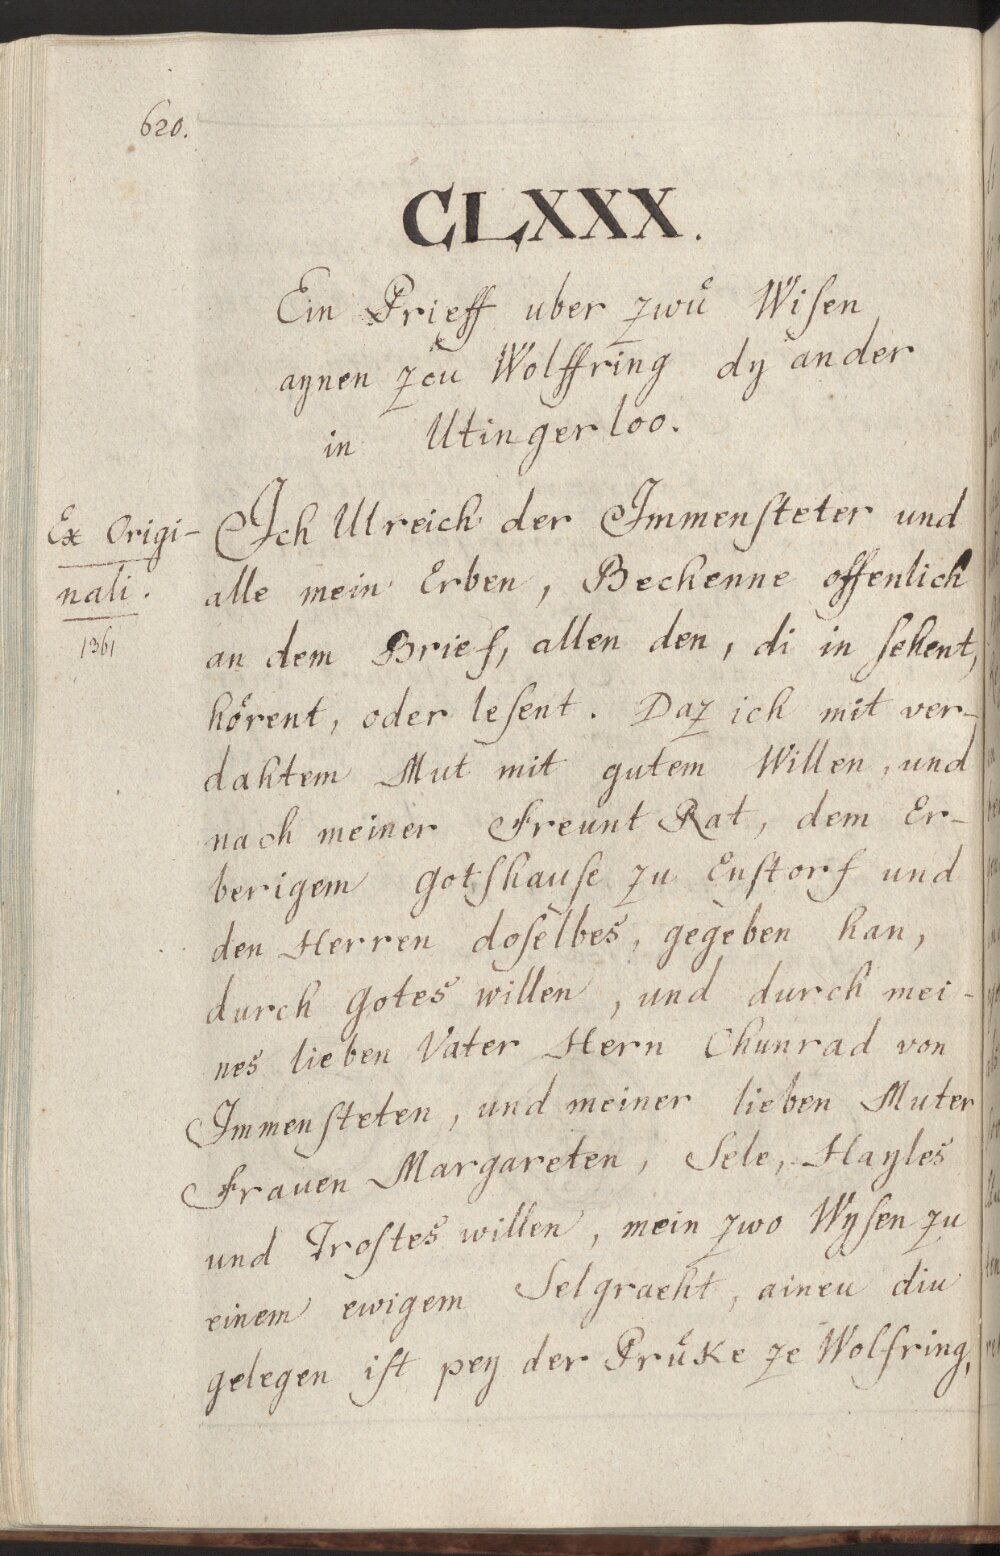 620.
CLXXX.
Ein Prieff uber zwuͤ Wiſen
aynen zcuͤ Wolffring dy ander
in Utingerloo.
Ex Origi-
nali.
1361
Ich Ulreich der Immenſteter und
alle mein Erben, Beckenne offenlich
an dem Brief, allen den, di in ſehent,
hoͤrent, oder leſent. Daz ich mit ver-
dahtem Mut mit gutem Willen, und
nach meiner Freunt Rat, dem Er-
berigem Gotſhauſe zu Enſtorf und
den Herren doſelbes, gegeben han,
durch Gotes willen, und durch mei-
nes lieben Vater Hern Chunrad von
Immenſteten, und meiner lieben Muter
Frauen Margareten, Sele, Hayles
und Troſtes willen, mein zwo Wyſen zu
einem ewigem Selgraeht, aineu diu
gelegen iſt pey der Pruͤke ze Wolfring,